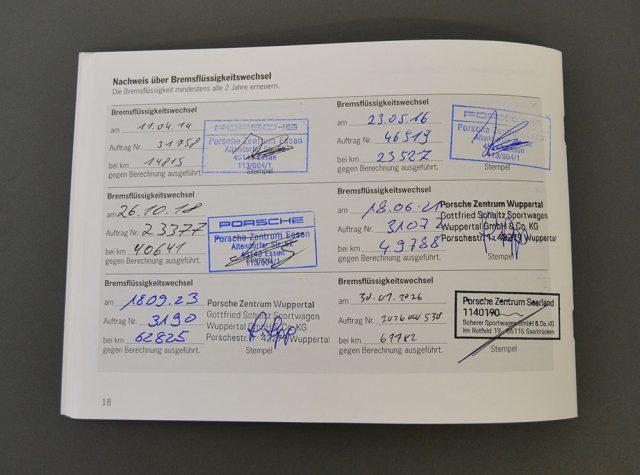 Nachweis über Bremsflüssigkeitswechsel
Die Bremsflüssigkeit mindestens alle 2 Jahre erneuern.
Bremsflüssigkeitswechsel
am 11.04.14
Auftrag Nr. 31758
bei km 14815
gegen Berechnung ausgeführt.
PORSCHE
Porsche Zentrum Essen
Altendorfer Str. 52
45143 Essen
113/004/1
Stempel
Bremsflüssigkeitswechsel
am 23.05.16
Auftrag Nr. 46519
bei km 23527
gegen Berechnung ausgeführt.
PORSCHE
Porsche Zentrum Essen
45143 Essen
113/004/1
Stempel
Bremsflüssigkeitswechsel
am 26.10.18
Auftrag Nr. 23377
bei km 40641
gegen Berechnung ausgeführt.
PORSCHE
Porsche Zentrum Essen
Altendorfer Str. 52
45143 Essen
113/004/1
Stempel
Bremsflüssigkeitswechsel
am 18.06.21
Auftrag Nr. 31077
bei km 49788
gegen Berechnung ausgeführt.
Porsche Zentrum Wuppertal
Gottfried Schultz Sportwagen
Wuppertal GmbH & Co. KG
Porschestr. 1, 42279 Wuppertal
Bremsflüssigkeitswechsel
am 18.09.23
Auftrag Nr. 3190
bei km 62825
gegen Berechnung ausgeführt.
Porsche Zentrum Wuppertal
Gottfried Schultz Sportwagen
Wuppertal GmbH & Co. KG
Porschestr. 1, 42279 Wuppertal
Stempel
Bremsflüssigkeitswechsel
am 30.01.2026
Auftrag Nr. 2026 530
bei km 67782
gegen Berechnung ausgeführt.
Porsche Zentrum Saarland
1140190
Scherer Sportwagen GmbH & Co. KG
Im Rotfeld 19 · 66115 Saarbrücken
Stempel
18